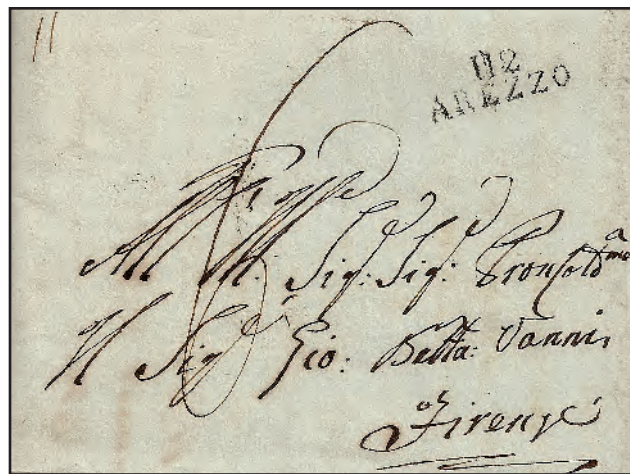 112
AREZZO
All' Ill: Sig: Sig: Pron Cold.mo
Il Sig Gio: Batta: Vanni
Firenze